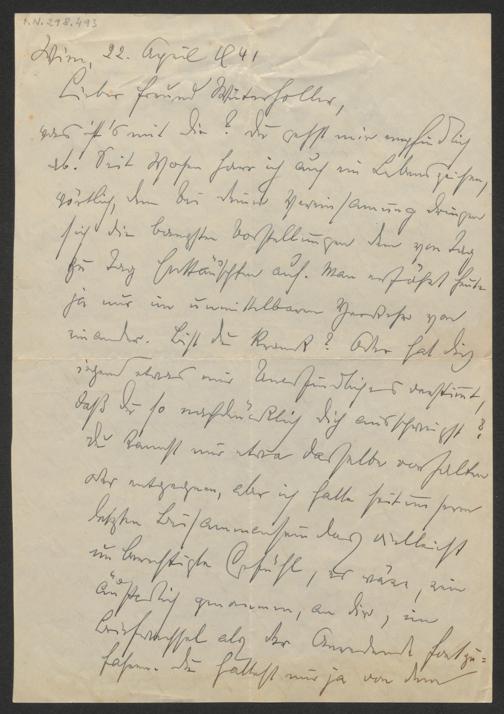 I.N. 298.493
Wien, 22. April 1941
Lieber Freund Winterholler,
was ist's mit dir? Du gehst mir empfindlich
ab. Seit Wochen harr ich auf ein Lebenszeichen,
wörtlich, denn bei deiner Vereinsamung drängen
sich die bangsten Vorstellungen dem von Tag
zu Tag Enttäuschten auf. Man erfährt heute
ja nur im unmittelbaren Verkehr von
einander. Bist du krank? Oder hat dich
irgend etwas mir Unerfindliches verstimmt,
daß du so nachdrücklich dich ausschweigst?
Du kannst mir etwa dasselbe vorhalten
oder entgegnen, aber ich hatte seit unserm
letzten Beisammensein das vielleicht
unberechtigte Gefühl, es wäre, rein
äußerlich genommen, an dir, im
Briefwechsel als der fortzu-
fahren. Du hattest mir ja von dem